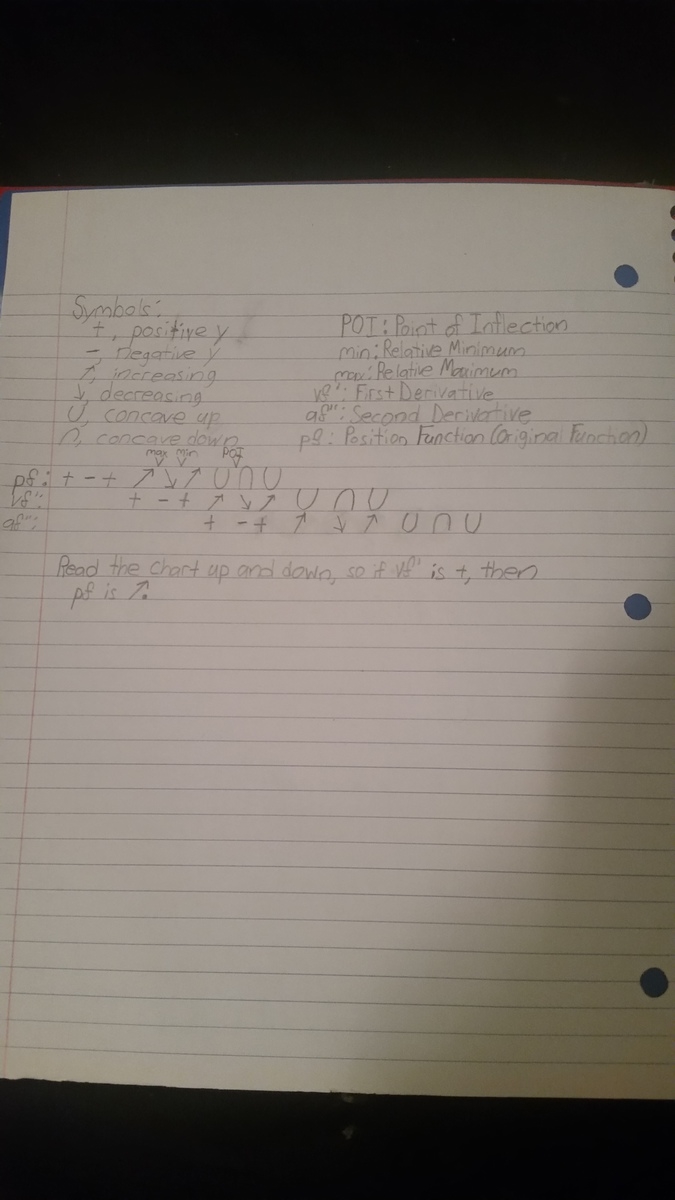 Symbols:
+, positive y
POI: Point of Inflection
-, negative y
min: Relative Minimum
↗, increasing
max: Relative Maximum
↘, decreasing
vf': First Derivative
∪, concave up
af'': Second Derivative
∩, concave down
pf: Position Function (Original Function)
max min POI
pf: + - + ↗ ↘ ↗ ∪ ∩ ∪
vf': + - + ↗ ↘ ↗ ∪ ∩ ∪
af'': + - + ↗ ↘ ↗ ∪ ∩ ∪
Read the chart up and down, so if vf' is +, then
pf is ↗.